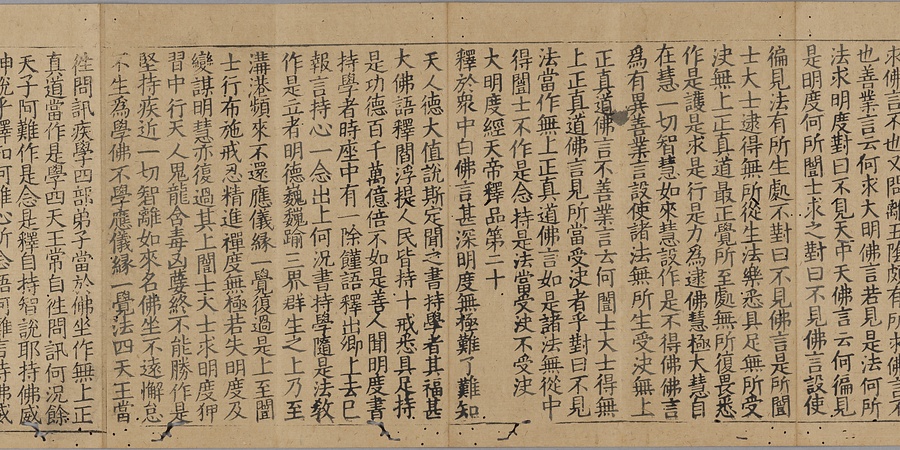 求佛言不也又問離五陰頗有所求佛言不
也善業言云何求大明佛言若見是法何所
法求明度對曰不見天中天佛言云何徧見
是明度何所闓士求之對曰不見佛言設使
徧見法有所生處不對曰不見佛言是所闓
士大士逮得無所從生法樂悉具足無所受
決無上正真道最正覺所至處無所復畏悉
作是護是求是行是力為逮佛慧極大慧自
在慧一切智慧如來慧設作是不得佛佛言
為有異善業言設使諸法無所生受決無上
正真道佛言不善業言云何闓士大士得無
上正真道佛言見所當受決者乎對曰不見
法當作無上正真道佛言如是諸法無從中
得闓士不作是念持是法當受決不受決
大明度經天帝釋品第二十
釋於衆中白佛言甚深明度無極難了難知
天人德大值說斯定聞之書持學者其福甚
大佛語釋閻浮提人民皆持十戒悉具足持
是功德百千萬億倍不如是善人聞明度書
持學者時座中有一除饉語釋出卿上去已
報言持心一念出上何況書持學隨是法教
作是立者明德巍巍踰三界群生之上乃至
溝港頻來不還應儀緣一覺復過是上至闓
士行布施戒忍精進禪度無極若失明度及
變謀明慧亦復過其上闓士大士求明度狎
習中行天人鬼龍含毒凶孽終不能勝作是
堅持疾近一切智離如來名佛坐不遠懈怠
不生為學佛不學應儀緣一覺法四天王當
徃問訊疾學四部弟子當於佛坐作無上正
直道當作是學四天王常自徃問訊何況餘
天子阿難作是念是釋自持智說耶持佛威
神說乎釋知阿難心所念語阿難言持佛威